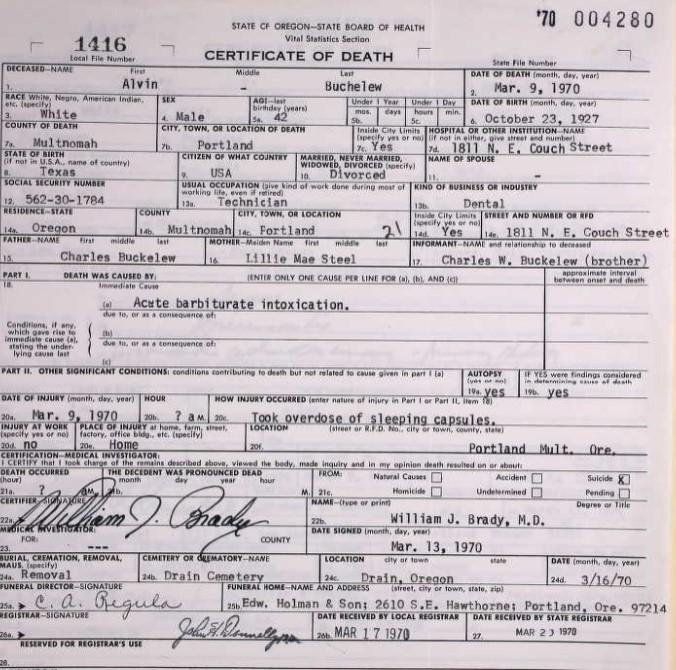 STATE OF OREGON—STATE BOARD OF HEALTH
Vital Statistics Section
'70 004280
1416
Local File Number
CERTIFICATE OF DEATH
State File Number
DECEASED—NAME First Middle Last
1. Alvin - Buchelew
DATE OF DEATH (month, day, year)
2. Mar. 9, 1970
RACE White, Negro, American Indian, etc. (specify)
3. White
SEX
4. Male
AGE—last birthday (years)
5a. 42
Under 1 Year
mos. days
5b.
Under 1 Day
hours min.
5c.
DATE OF BIRTH (month, day, year)
6. October 23, 1927
COUNTY OF DEATH
7a. Multnomah
CITY, TOWN, OR LOCATION OF DEATH
7b. Portland
Inside City Limits (specify yes or no)
7c. Yes
HOSPITAL OR OTHER INSTITUTION—NAME (if not in either, give street and number)
7d. 1811 N. E. Couch Street
STATE OF BIRTH (if not in U.S.A., name of country)
8. Texas
CITIZEN OF WHAT COUNTRY
9. USA
MARRIED, NEVER MARRIED, WIDOWED, DIVORCED (specify)
10. Divorced
NAME OF SPOUSE
11. -
SOCIAL SECURITY NUMBER
12. 562-30-1784
USUAL OCCUPATION (give kind of work done during most of working life, even if retired)
13a. Technician
KIND OF BUSINESS OR INDUSTRY
13b. Dental
RESIDENCE—STATE
14a. Oregon
COUNTY
14b. Multnomah
CITY, TOWN, OR LOCATION
14c. Portland 21
Inside City Limits (specify yes or no)
14d. Yes
STREET AND NUMBER OR RFD
14e. 1811 N. E. Couch Street
FATHER—NAME first middle last
15. Charles Buckelew
MOTHER—Maiden Name first middle last
16. Lillie Mae Steel
INFORMANT—NAME and relationship to deceased
17. Charles W. Buckelew (brother)
PART I. DEATH WAS CAUSED BY: (ENTER ONLY ONE CAUSE PER LINE FOR (a), (b), AND (c))
approximate interval between onset and death
18. Immediate Cause
(a) Acute barbiturate intoxication.
due to, or as a consequence of:
Conditions, if any, which gave rise to immediate cause (a), stating the underlying cause last
(b)
due to, or as a consequence of:
(c)
PART II. OTHER SIGNIFICANT CONDITIONS: conditions contributing to death but not related to cause given in part I (a)
AUTOPSY (yes or no)
19a. yes
IF YES were findings considered in determining cause of death
19b. yes
DATE OF INJURY (month, day, year)
20a. Mar. 9, 1970
HOUR
20b. ? a M.
HOW INJURY OCCURRED (enter nature of injury in Part I or Part II, Item 18)
20c. Took overdose of sleeping capsules.
INJURY AT WORK (specify yes or no)
20d. no
PLACE OF INJURY at home, farm, street, factory, office bldg., etc. (specify)
20e. Home
LOCATION (street or R.F.D. No., city or town, county, state)
20f. Portland Mult. Ore.
CERTIFICATION—MEDICAL INVESTIGATOR:
I CERTIFY that I took charge of the remains described above, viewed the body, made inquiry and in my opinion death resulted on or about:
DEATH OCCURRED (hour)
21a. ? a M.
THE DECEDENT WAS PRONOUNCED DEAD
month day year hour
21b. M.
FROM:
21c.
Natural Causes Accident Suicide X
Homicide Undetermined Pending
CERTIFIER—SIGNATURE
22a. William J. Brady
NAME—(type or print) Degree or Title
22b. William J. Brady, M.D.
MEDICAL INVESTIGATOR:
FOR: COUNTY
23. ---
DATE SIGNED (month, day, year)
Mar. 13, 1970
BURIAL, CREMATION, REMOVAL, MAUS. (specify)
24a. Removal
CEMETERY OR CREMATORY—NAME
24b. Drain Cemetery
LOCATION city or town state
24c. Drain, Oregon
DATE (month, day, year)
24d. 3/16/70
FUNERAL DIRECTOR—SIGNATURE
25a. C. A. Regula
FUNERAL HOME—NAME AND ADDRESS (street, city or town, state, zip)
25b. Edw. Holman & Son; 2610 S.E. Hawthorne; Portland, Ore. 97214
REGISTRAR—SIGNATURE
26a.
DATE RECEIVED BY LOCAL REGISTRAR
26b. MAR 17 1970
DATE RECEIVED BY STATE REGISTRAR
27. MAR 23 1970
RESERVED FOR REGISTRAR'S USE
28.